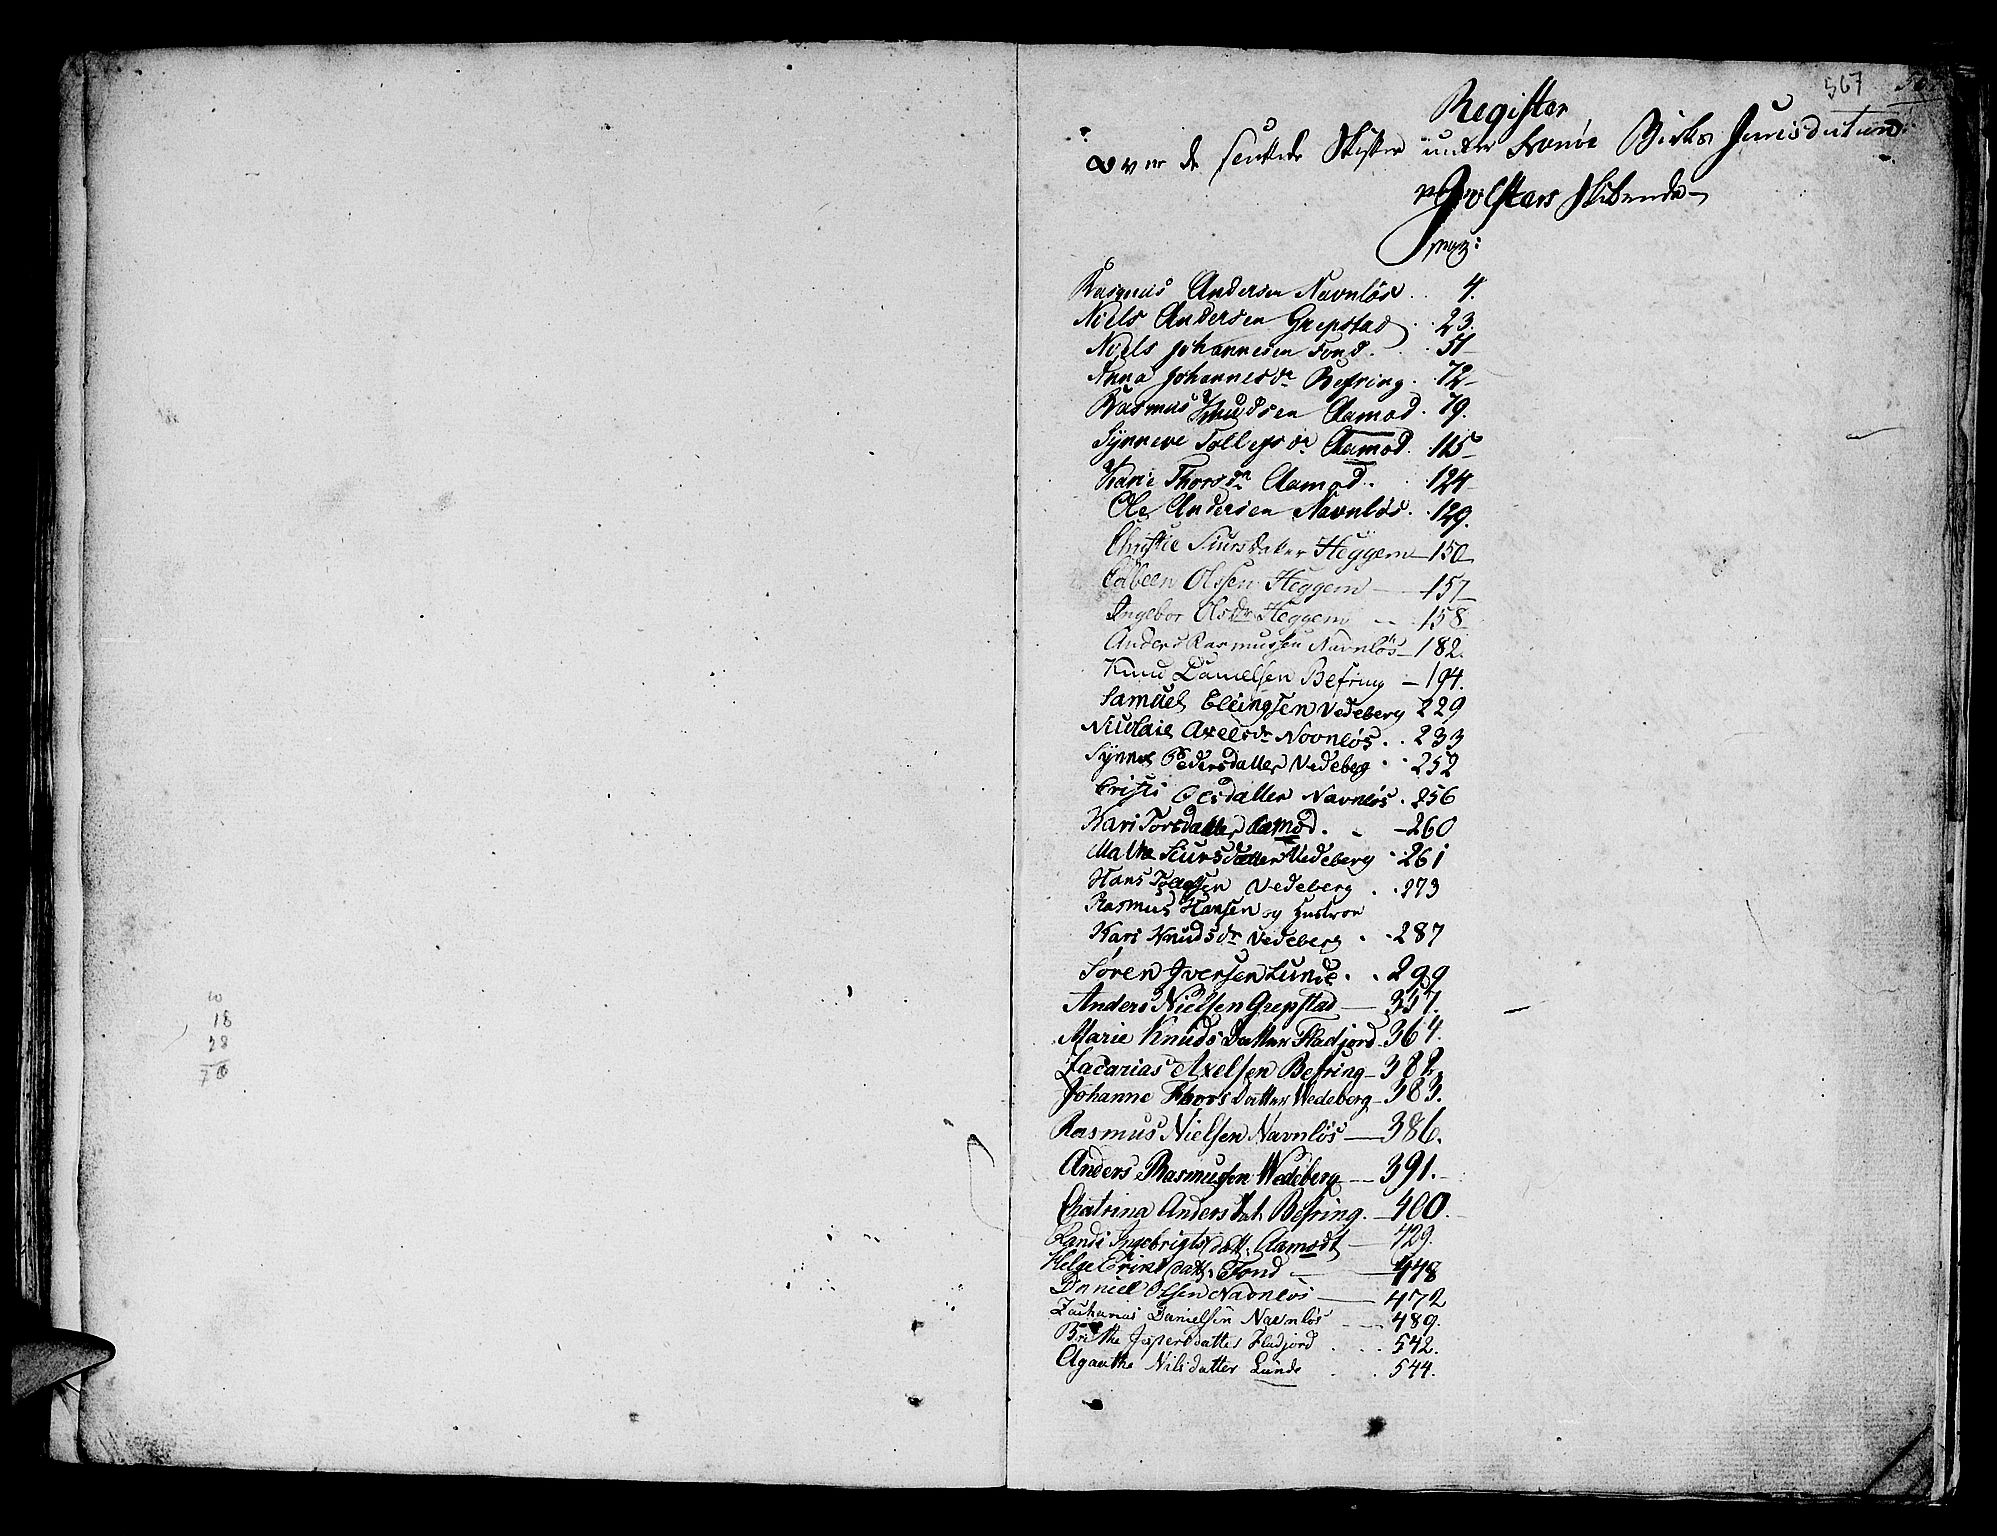 567
Register
over de sluttede Skifter under Svanøe Birks Jurisdiction
Jølsters Skibrede
pag:
Rasmus Andersen Navnløs . . 4.
Niels Andersen Grepstad . . 23.
Niels Johannesen Fond . . . 51
Anna Johannesdr Befring . . 72
Rasmus Knudsen Aamod . 79.
Synneve Tollefsdr Aamod . 115
Karie Thorsdr Aamod . . 124
Ole Andersen Navnløs . . 129.
Christie Siursdatter Heggem 150
Colbeen Olssen Heggem 157
Ingebor Olsdr Heggem 158
Anders Rasmussen Navnløs 182.
Knud Danielsen Befring 194.
Samuel Ellingsen Vedeberg 229
Nicolaie Axelsdr Novnløs . . 233
Synnes Pedersdatter Vedeberg . . 252
Cristi Olsdatter Navnløs . 256
Kari Torsdatter Aamod . . 260
Malthe Siursdatter Vedeberg . 261
Hans Vedeberg . . 273
Rasmus Hansen og Hustroe
Kari Knudsdr Vedeberg . . 287
Søren Iversen Lunde . . 299
Anders Nielsen Grepstad 357.
Marie Knuds Datter Fladjord 364.
Zacarias Axelsen Befring 382.
Johanne Thors Datter Wedeberg 383.
Rasmus Nielsen Navnløs 386.
Anders Rasmussen Wedeberg 391.
Chatrina Anders Dat. Befring. 400.
Randi Ingebrigts datt. Aamodt 429.
Helge Eriks datt. Fond 448
Daniel Olsen Navnløs 472
Zacharias Danielsen Navnløs 489.
Brithe Jespersdatter Fladjord . . . 542.
Agauthe Nilsdatter Lunde . . 544.
18